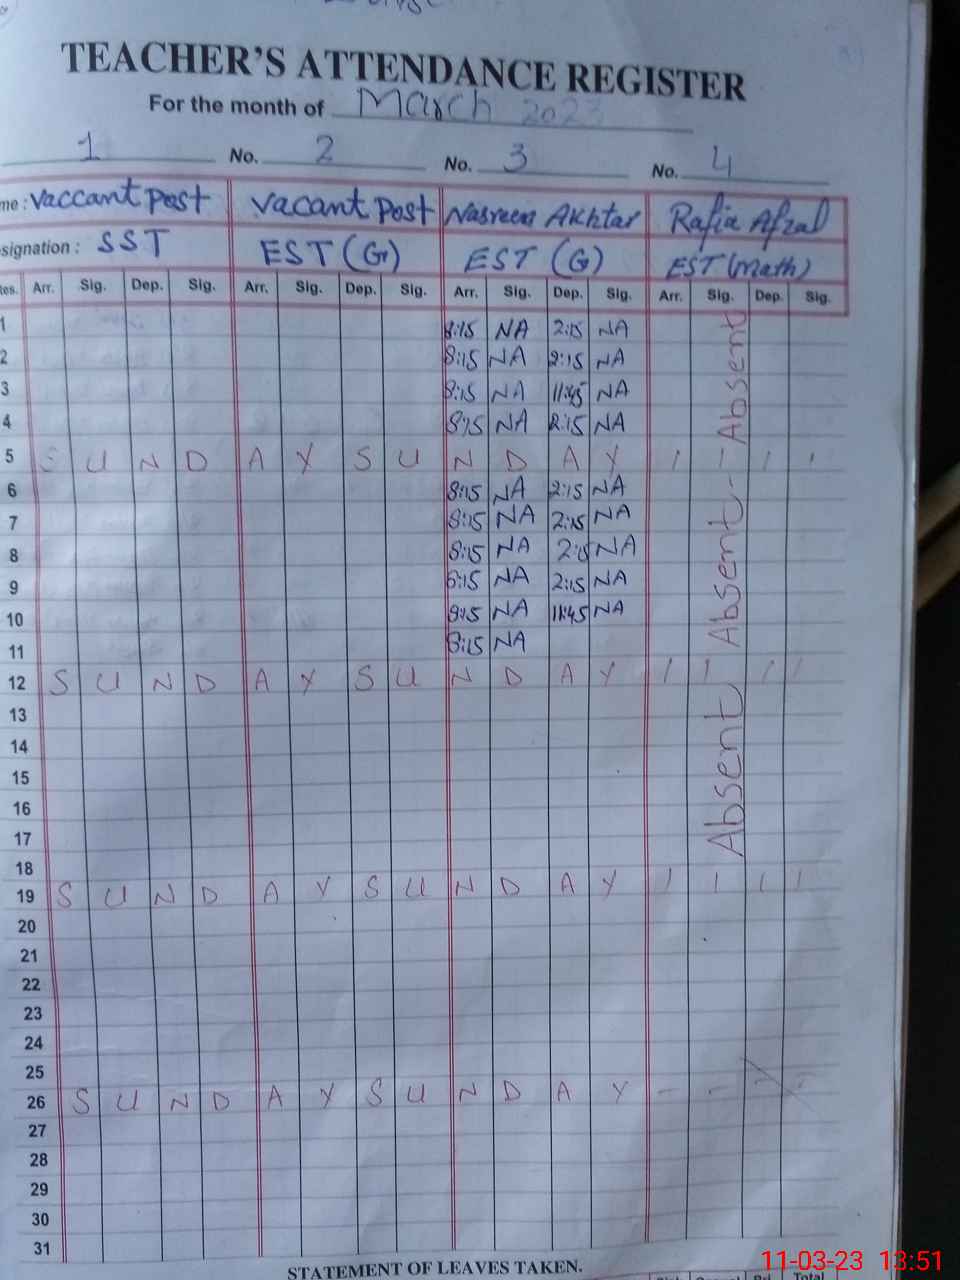 TEACHER'S ATTENDANCE REGISTER
For the month of March 2023
1 No. 2 No. 3 No. 4
me : Vaccant Post Vacant Post Nasreen Akhtar Rafia Afzal
signation : SST EST (G) EST (G) EST (Math)
tes. Arr. Sig. Dep. Sig. Arr. Sig. Dep. Sig. Arr. Sig. Dep. Sig. Arr. Sig. Dep. Sig.
1 8:15 NA 2:15 NA
2 8:15 NA 2:15 NA
3 8:15 NA 11:45 NA
4 8:15 NA 2:15 NA
5 S U N D A Y S U N D A Y
6 8:15 NA 2:15 NA
7 8:15 NA 2:15 NA
8 8:15 NA 2:15 NA
9 8:15 NA 2:15 NA
10 8:15 NA 11:45 NA
11 8:15 NA
12 S U N D A Y S U N D A Y
13
14
15
16
17
18
19 S U N D A Y S U N D A Y
20
21
22
23
24
25
26 S U N D A Y S U N D A Y
27
28
29
30
31
Absent Absent - Absent
STATEMENT OF LEAVES TAKEN.
Total
11-03-23 13:51